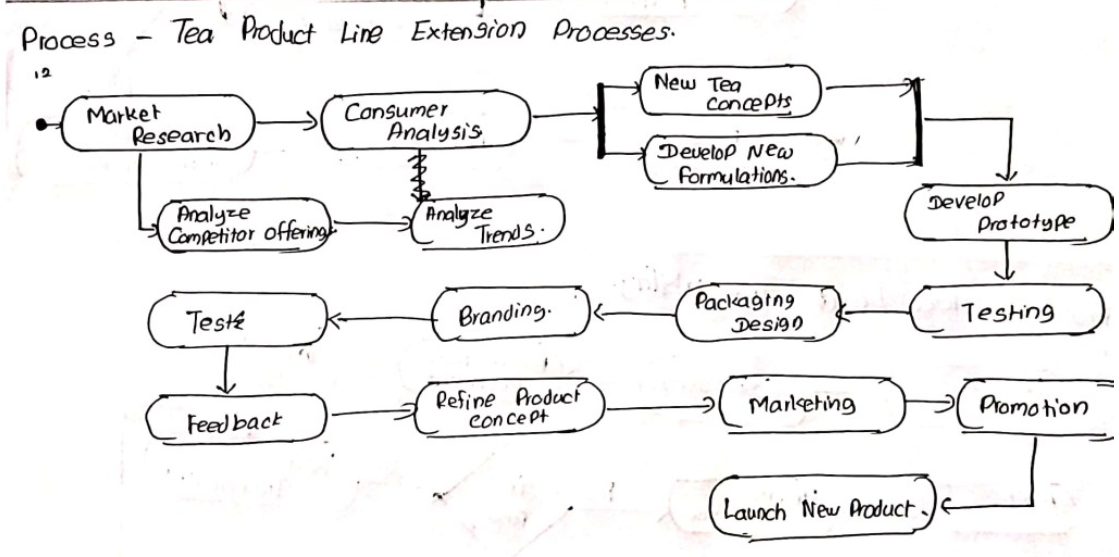 Process - Tea Product Line Extension Processes.
12
Market
Research
Consumer
Analysis
New Tea
Concepts
Develop New
Formulations.
Analyze
Competitor offering
Analyze
Trends.
Develop
Prototype
Test
Branding.
Packaging
Design
Testing
Feedback
Refine Product
Concept
Marketing
Promotion
Launch New Product.